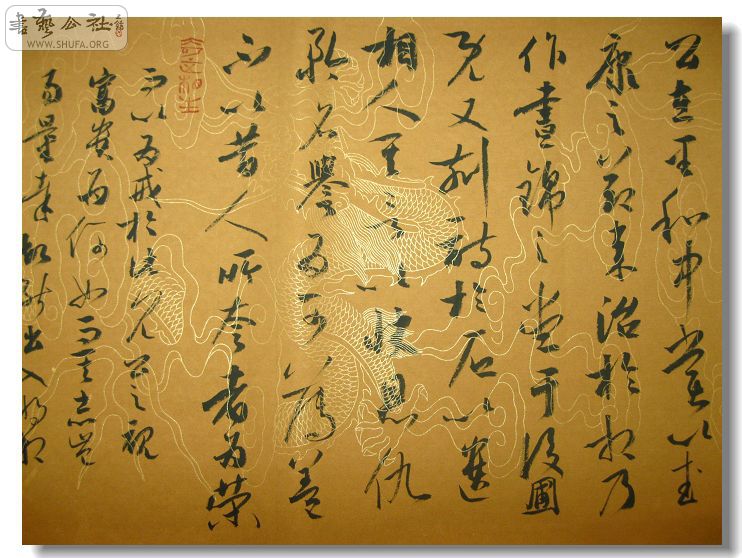 書藝公社
WWW.SHUFA.ORG
公在至和中嘗以武
康之節来治於相乃
作晝錦之堂于後圃
既又刻詩於石以遺
相人其言以快恩仇
矜名譽為可薄蓋
不以昔人所夸者為榮
而以為戒於此見公之視
富貴為何如而其志豈
易量哉故能出入將相